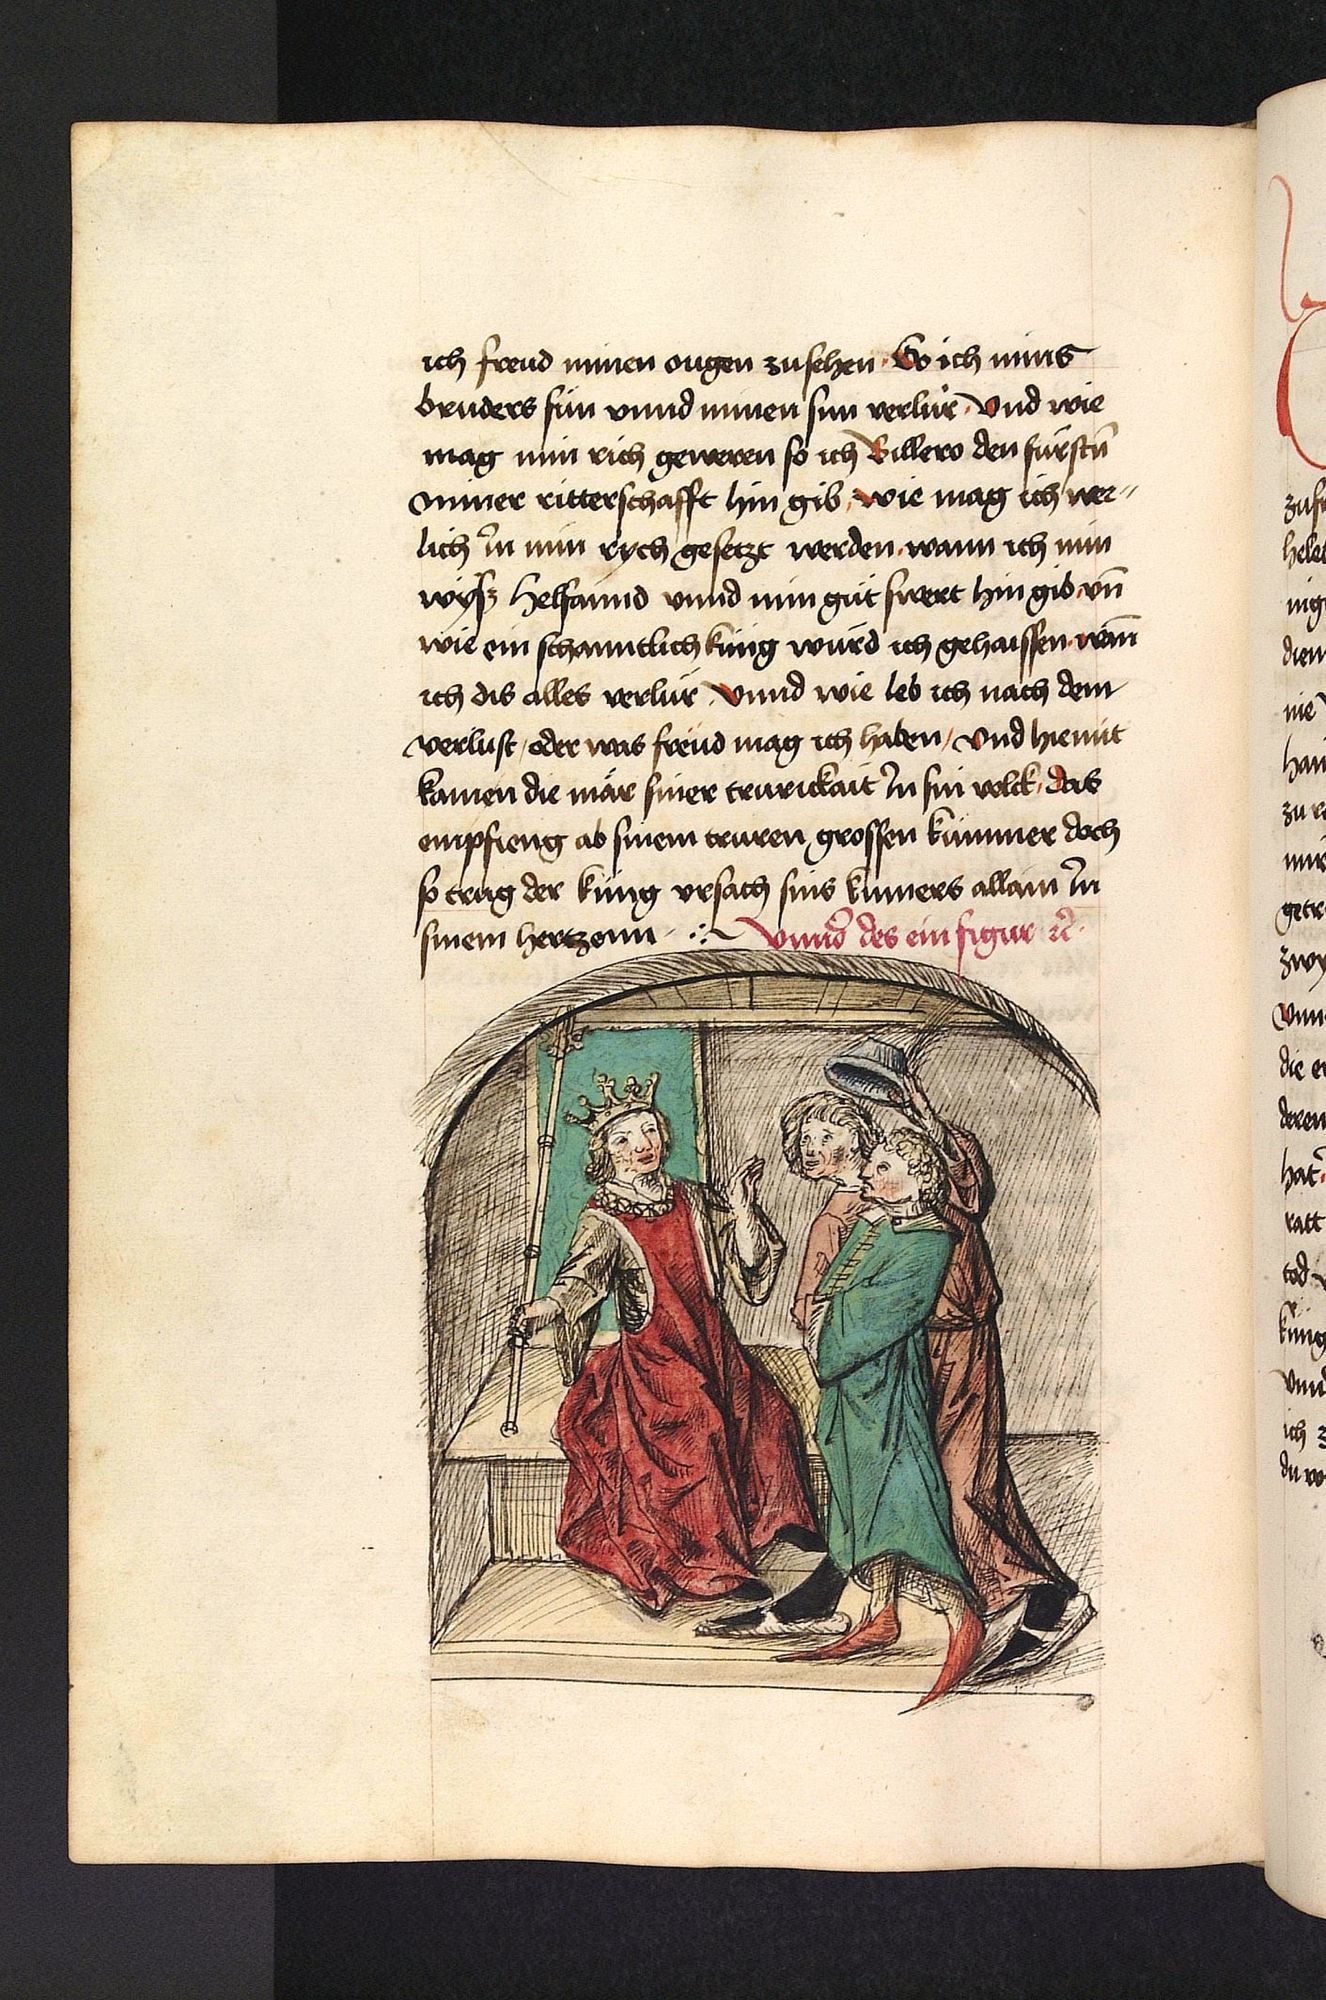 ich freud minen ougen zusehen · So ich mins
bruders sün vnnd minen sun verlür · Vnd wie
mag min rich geweren so ich Billero den fürstñ
miner ritterschafft hin gib · wie mag ich wer„
lich in min rych gesetzt werden · wann ich min
wyß helfannd vnnd min güt swert hin gib · vñ
wie ein schanntlich küng würd ich gehaissen · wañ
ich dis alles verlür · Vnnd wie leb ich nach dem
verlust / oder was freüd mag ich haben / Vnd hiemit
kamen die mär siner trurickait in sin volck · das
empfieng ab sinem truren grossen kümmer doch
so trug der küng vrsach sins kumers allain in
sinem hertzenn · Vnnd des ein figur ꝛc̃ ·
zu
die
nie
zu
mir
getr
zwy
Vnn
die e
deren
hat
ratt
tod
küng
Vnn
ich
du w